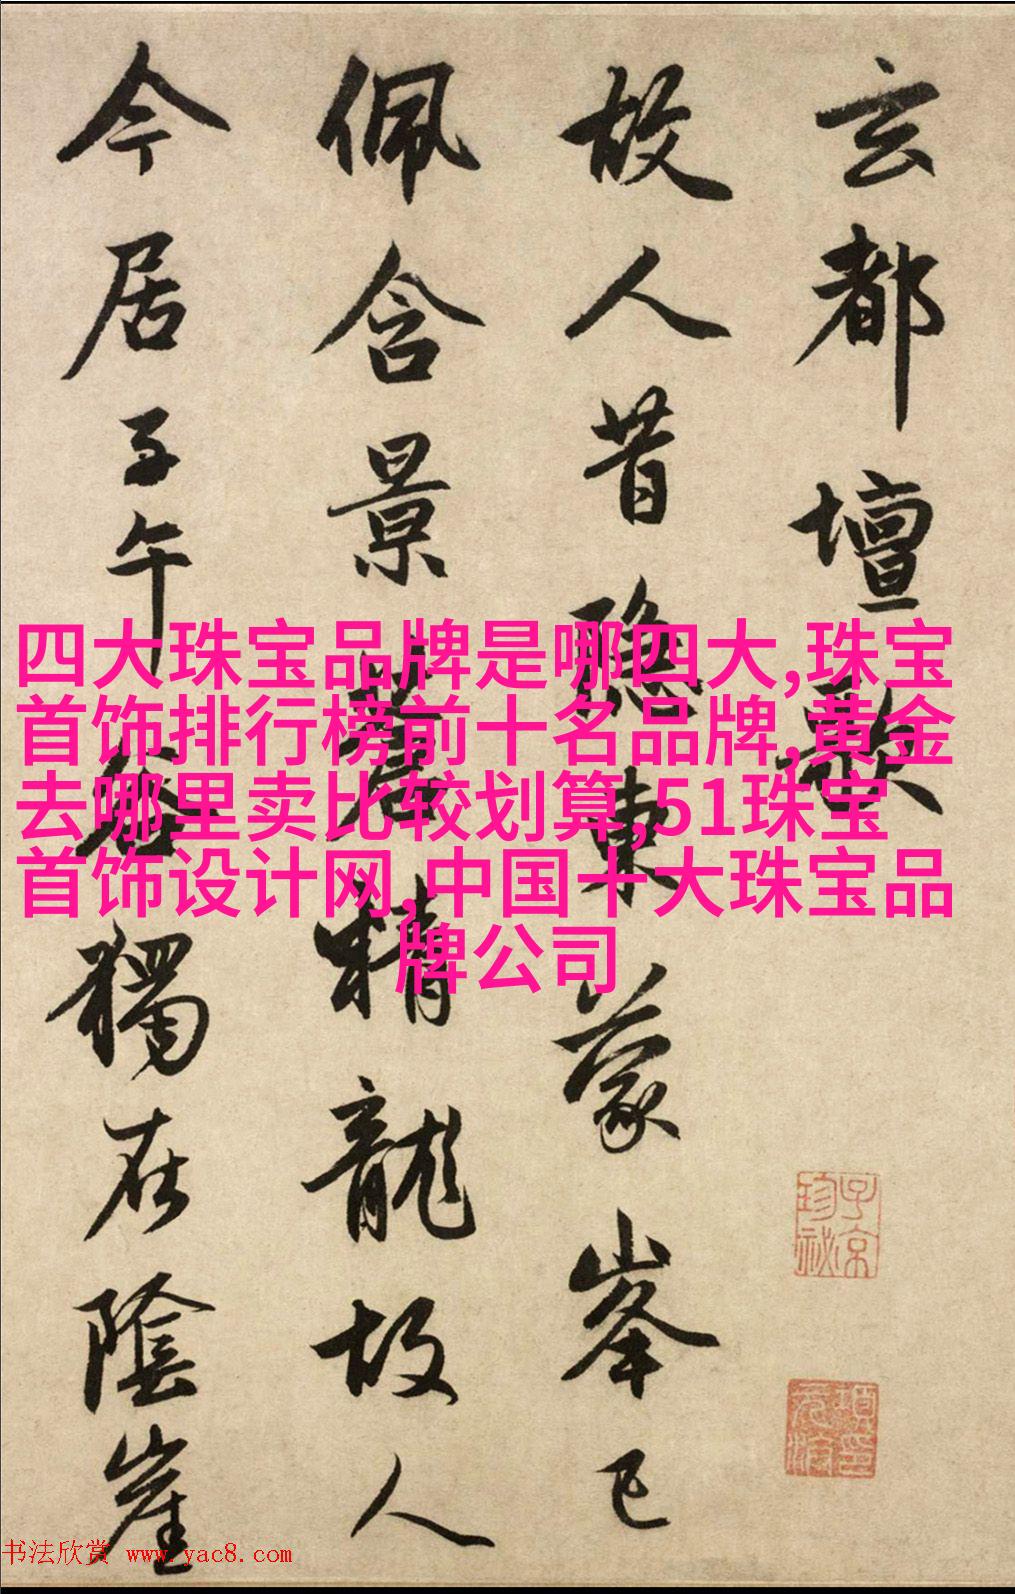 玄都壇歌
故人昔隱東蒙峯已
佩含景蒼精龍故人
今居子午谷獨在陰崖
四大珠宝品牌是哪四大,珠宝
首饰排行榜前十名品牌,黄金
去哪里卖比较划算,51珠宝
首饰设计网,中国十大珠宝品
牌公司
子京
珍祕
书法欣赏 www.yac8.com